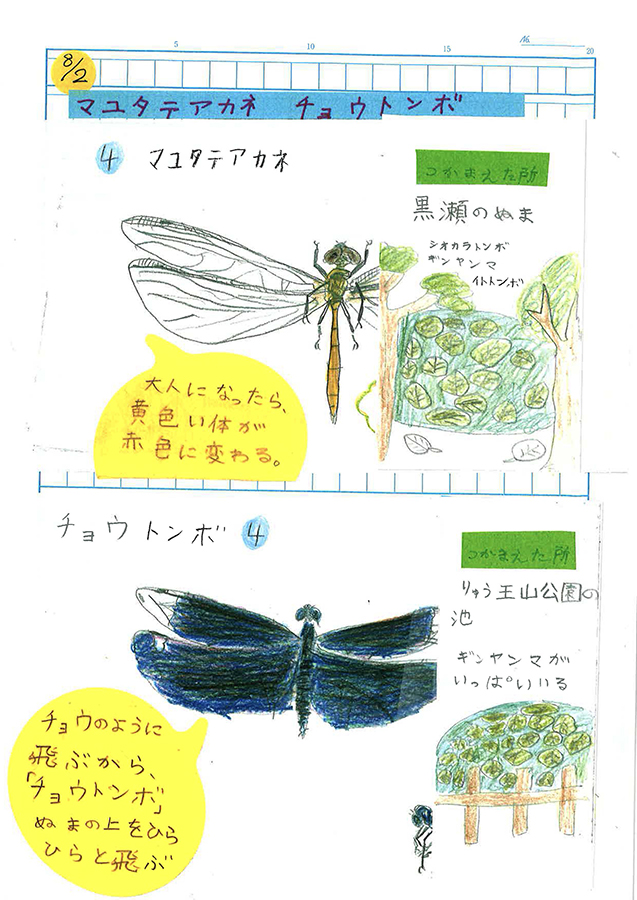 8/2
5
10
15
No.
20
マユタテアカネ チョウトンボ
4 マユタテアカネ
つかまえた所
黒瀬のぬま
シオカラトンボ
ギンヤンマ
イトトンボ
大人になったら、
黄色い体が
赤色に変わる。
チョウトンボ 4
つかまえた所
りゅう王山公園の
池
ギンヤンマが
いっぱいいる
チョウのように
飛ぶから、
「チョウトンボ」
ぬまの上をひら
ひらと飛ぶ